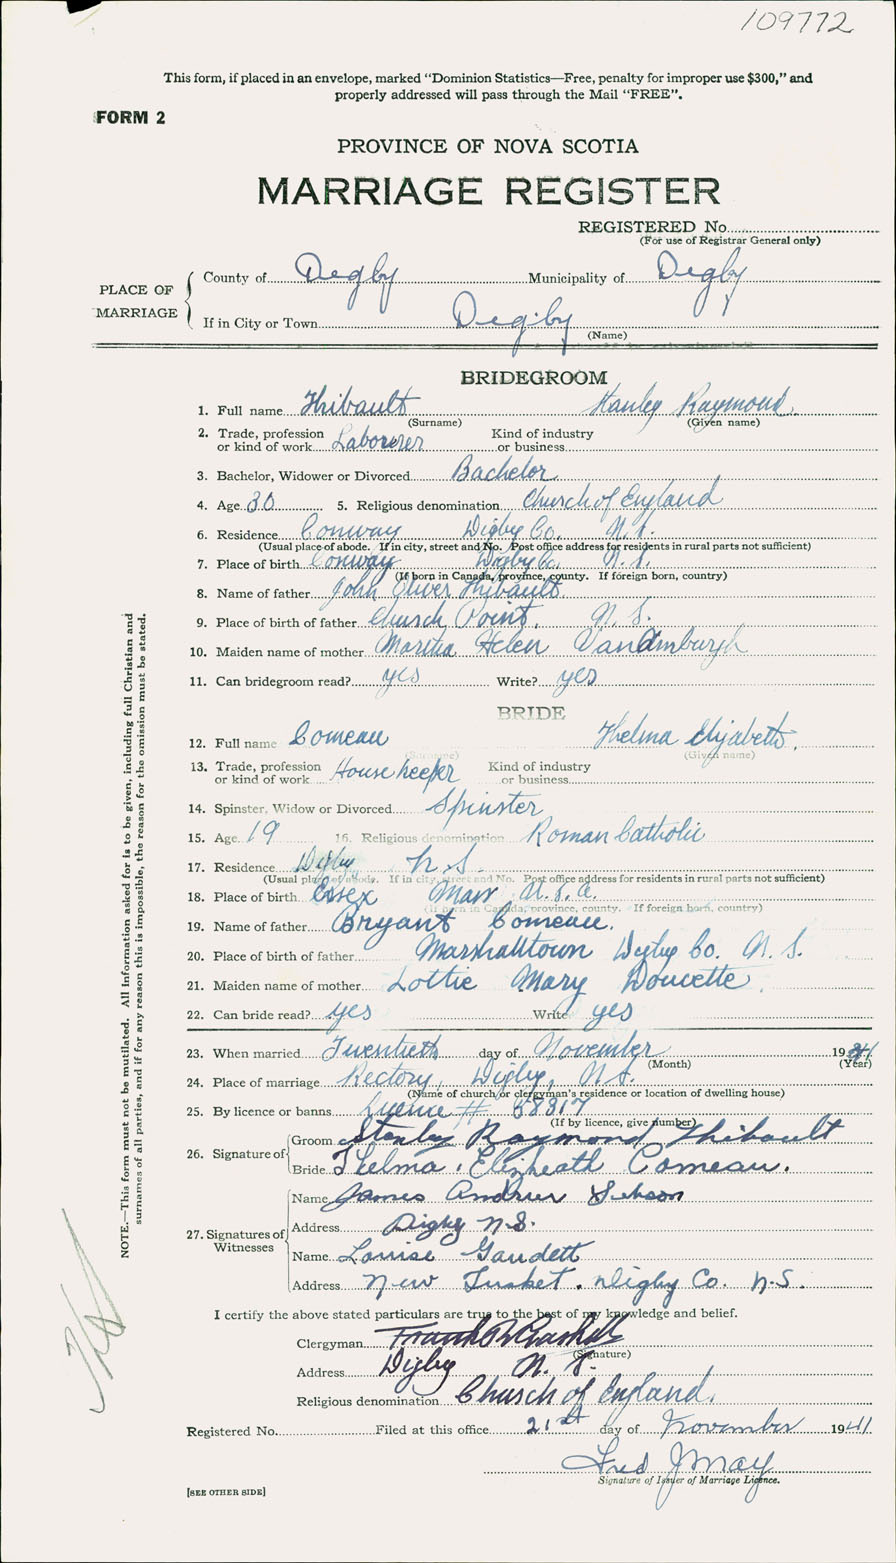 109772
This form, if placed in an envelope, marked "Dominion Statistics—Free, penalty for improper use $300," and
properly addressed will pass through the Mail "FREE".
FORM 2
PROVINCE OF NOVA SCOTIA
MARRIAGE REGISTER
REGISTERED No.
(For use of Registrar General only)
PLACE OF MARRIAGE
County of Digby Municipality of Digby
If in City or Town Digby
(Name)
BRIDEGROOM
1. Full name Thibault Stanley Raymond
(Surname) (Given name)
2. Trade, profession or kind of work Laborerer Kind of industry or business
3. Bachelor, Widower or Divorced Bachelor
4. Age 30 5. Religious denomination Church of England
6. Residence Conway Digby Co. N.S.
(Usual place of abode. If in city, street and No. Post office address for residents in rural parts not sufficient)
7. Place of birth Conway Digby Co. N.S.
(If born in Canada, province, county. If foreign born, country)
8. Name of father John Oliver Thibault.
9. Place of birth of father Church Point, N.S.
10. Maiden name of mother Martha Helen VanAmburgh
11. Can bridegroom read? yes Write? yes
BRIDE
12. Full name Comeau Thelma Elizabeth.
(Surname) (Given name)
13. Trade, profession or kind of work House keeper Kind of industry or business
14. Spinster, Widow or Divorced Spinster
15. Age 19 16. Religious denomination Roman Catholic
17. Residence Digby N.S.
(Usual place of abode. If in city, street and No. Post office address for residents in rural parts not sufficient)
18. Place of birth Essex Mass U.S.A.
(If born in Canada, province, county. If foreign born, country)
19. Name of father Bryant Comeau.
20. Place of birth of father Marshalltown Digby Co. N.S.
21. Maiden name of mother Lottie Mary Doucette.
22. Can bride read? yes Write yes
23. When married Twentieth day of November 1941
(Month) (Year)
24. Place of marriage Rectory, Digby, N.S.
(Name of church/or clergyman's residence or location of dwelling house)
25. By licence or banns License # 58317
(If by licence, give number)
26. Signature of
Groom Stanley Raymond Thibault
Bride Thelma. Elizheath Comeau.
27. Signatures of Witnesses
Name James Andrew
Address Digby N.S.
Name Louise Gaudett
Address New Tusket. Digby Co. N.S.
I certify the above stated particulars are true to the best of my knowledge and belief.
Clergyman Frank
(Signature)
Address Digby N.S.
Religious denomination Church of England.
Registered No. Filed at this office 21st day of November 1941
Fred J May
Signature of Issuer of Marriage Licence.
[SEE OTHER SIDE]
NOTE.—This form must not be mutilated. All Information asked for is to be given, including full Christian and
surnames of all parties, and if for any reason this is impossible, the reason for the omission must be stated.